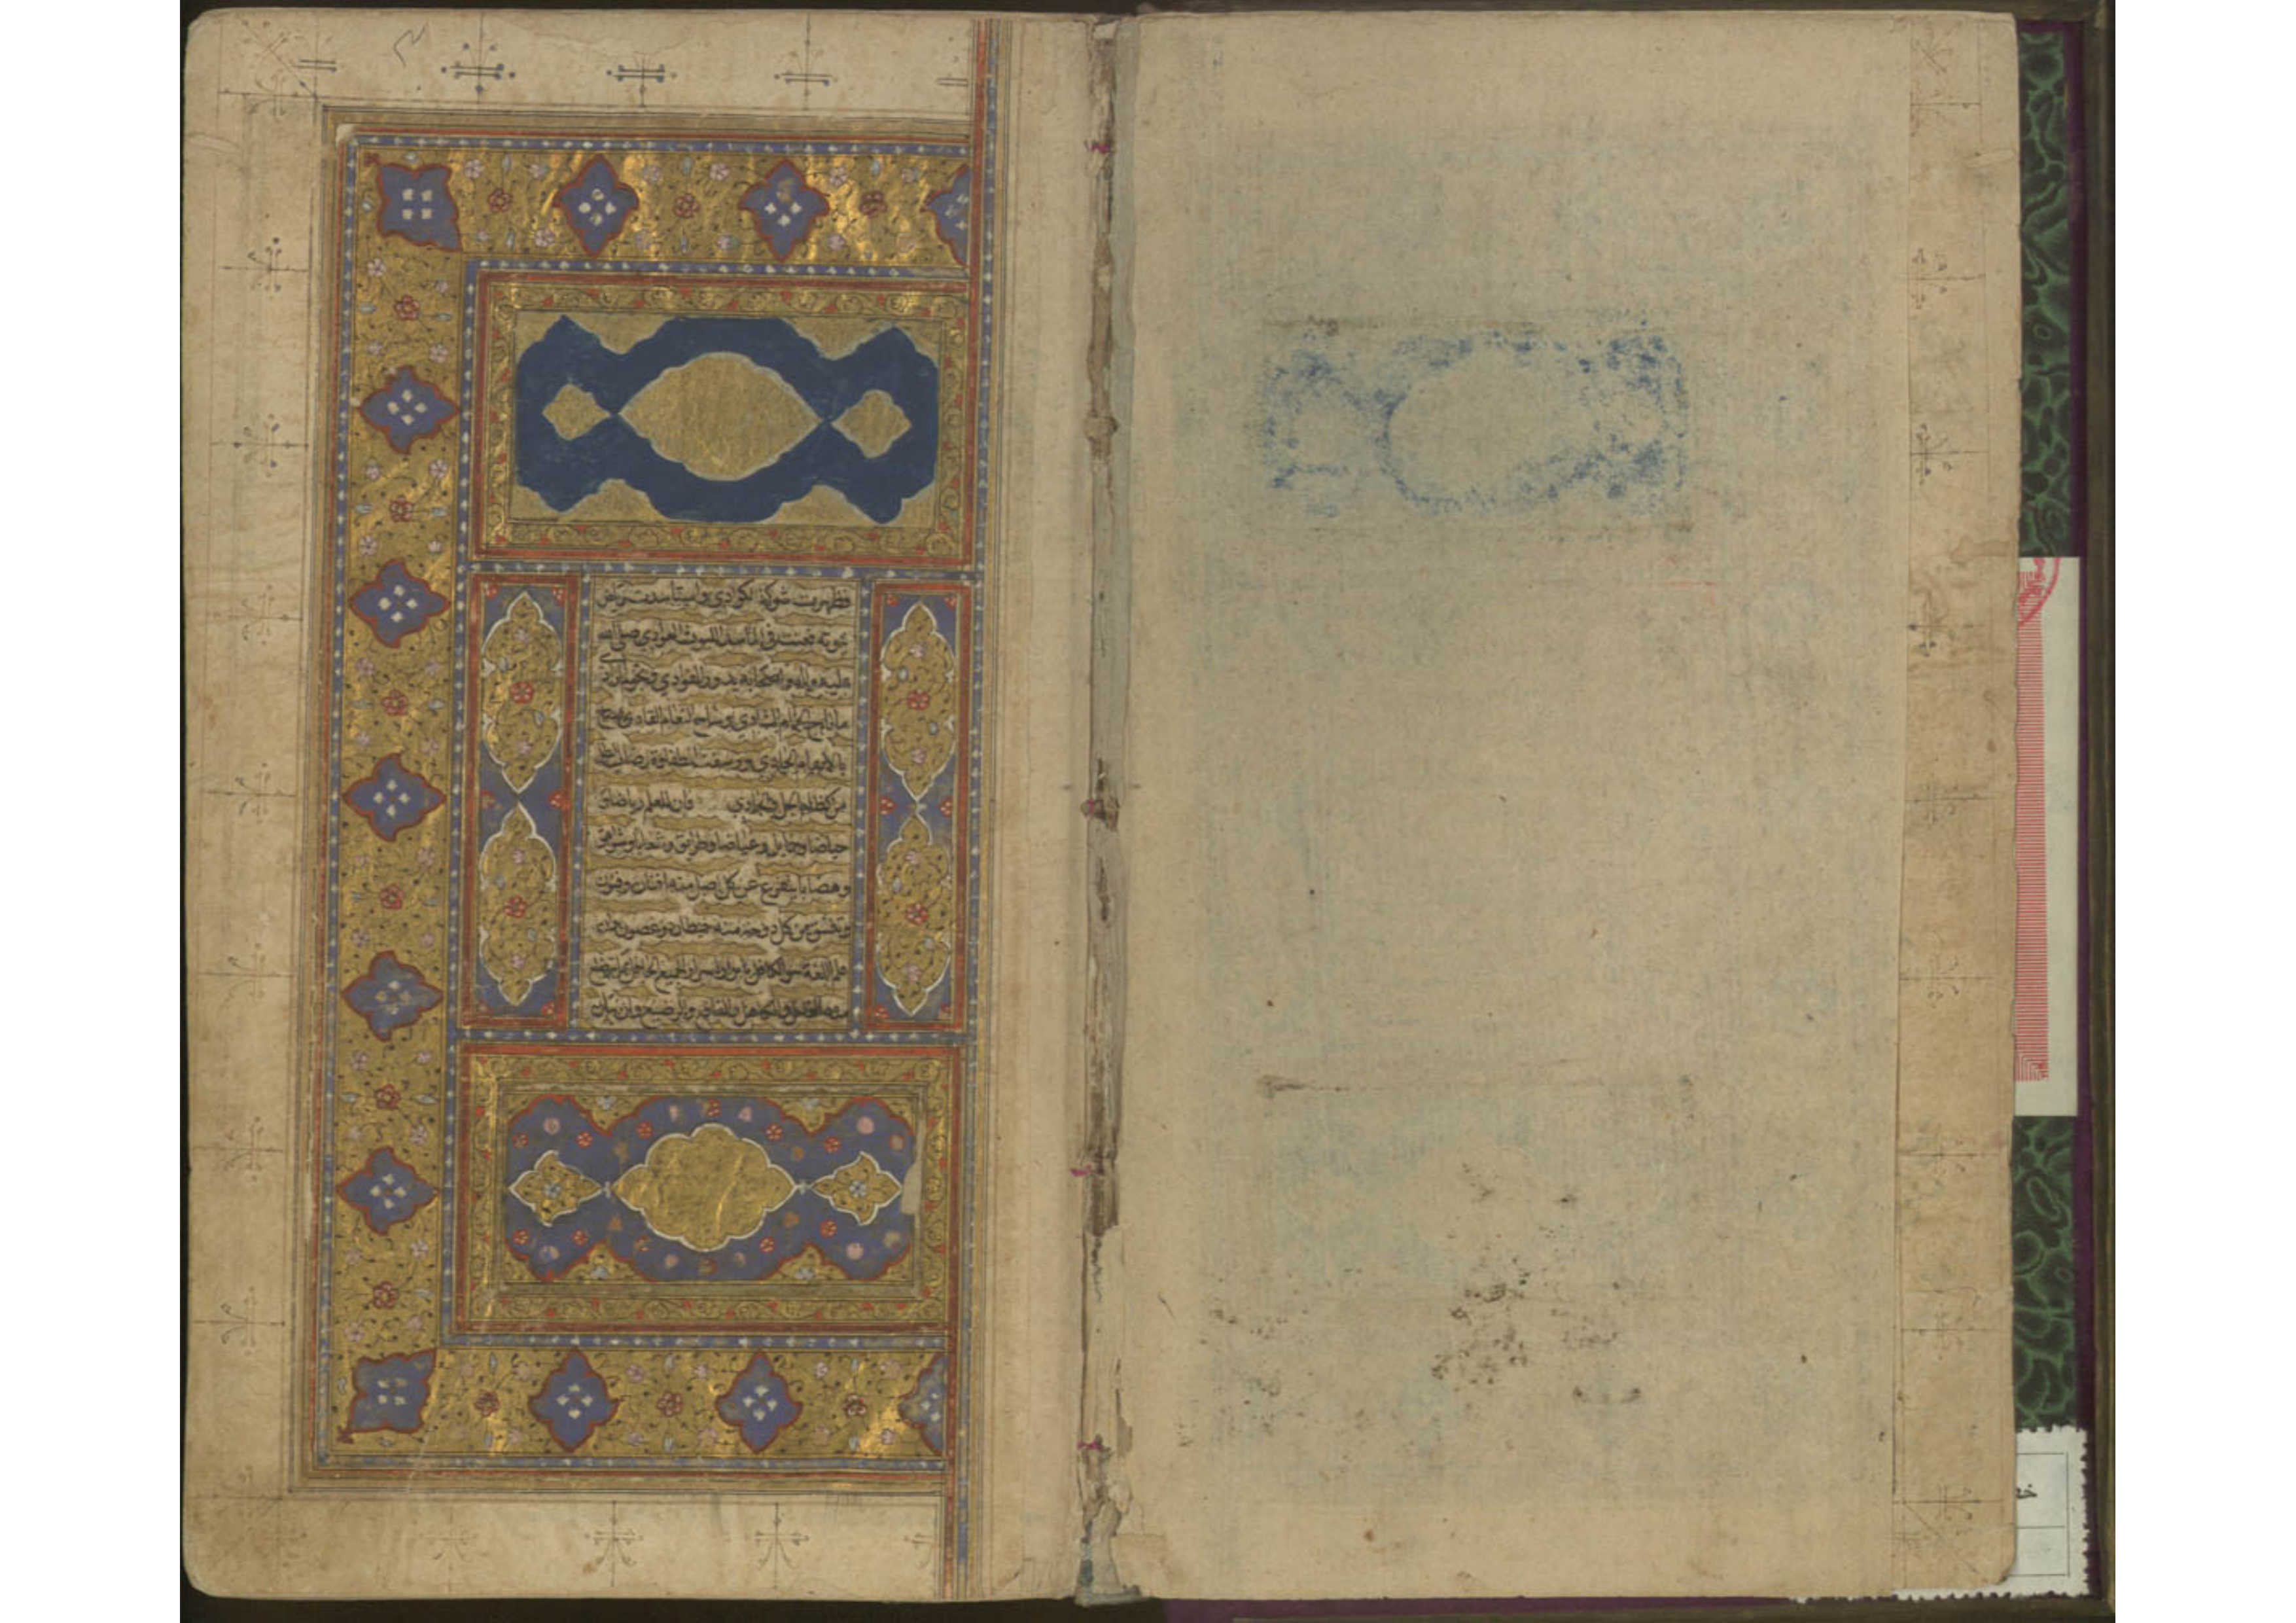 فظهرت شوكة الكوادي واستأسدت رياض
نبوته فعيت في المآسد الليوث العوادي صلى الله
عليه وآله واصحابه بدور القوادي
ما ناح الحمام الشادي وساح النعام القادي وصاح
بالانغام الحادي ورشفت الطفاوة رضاب الطل
من كظام الجل والجادي فان للعلم رياضا و
حياضا وخمايل وغياضا وطرايق وشعابا وشواهق
وهضابا يتفرع عن كل اصل منه افنان وفنون
وينشق عن كل دوحة منه خيطان وغصون وان
علم اللغة هو الكافل بابراز اسرار الجميع الحافل بما يتضلع
منه القاحل والكاهل والفاقع والرضيع وان بيان